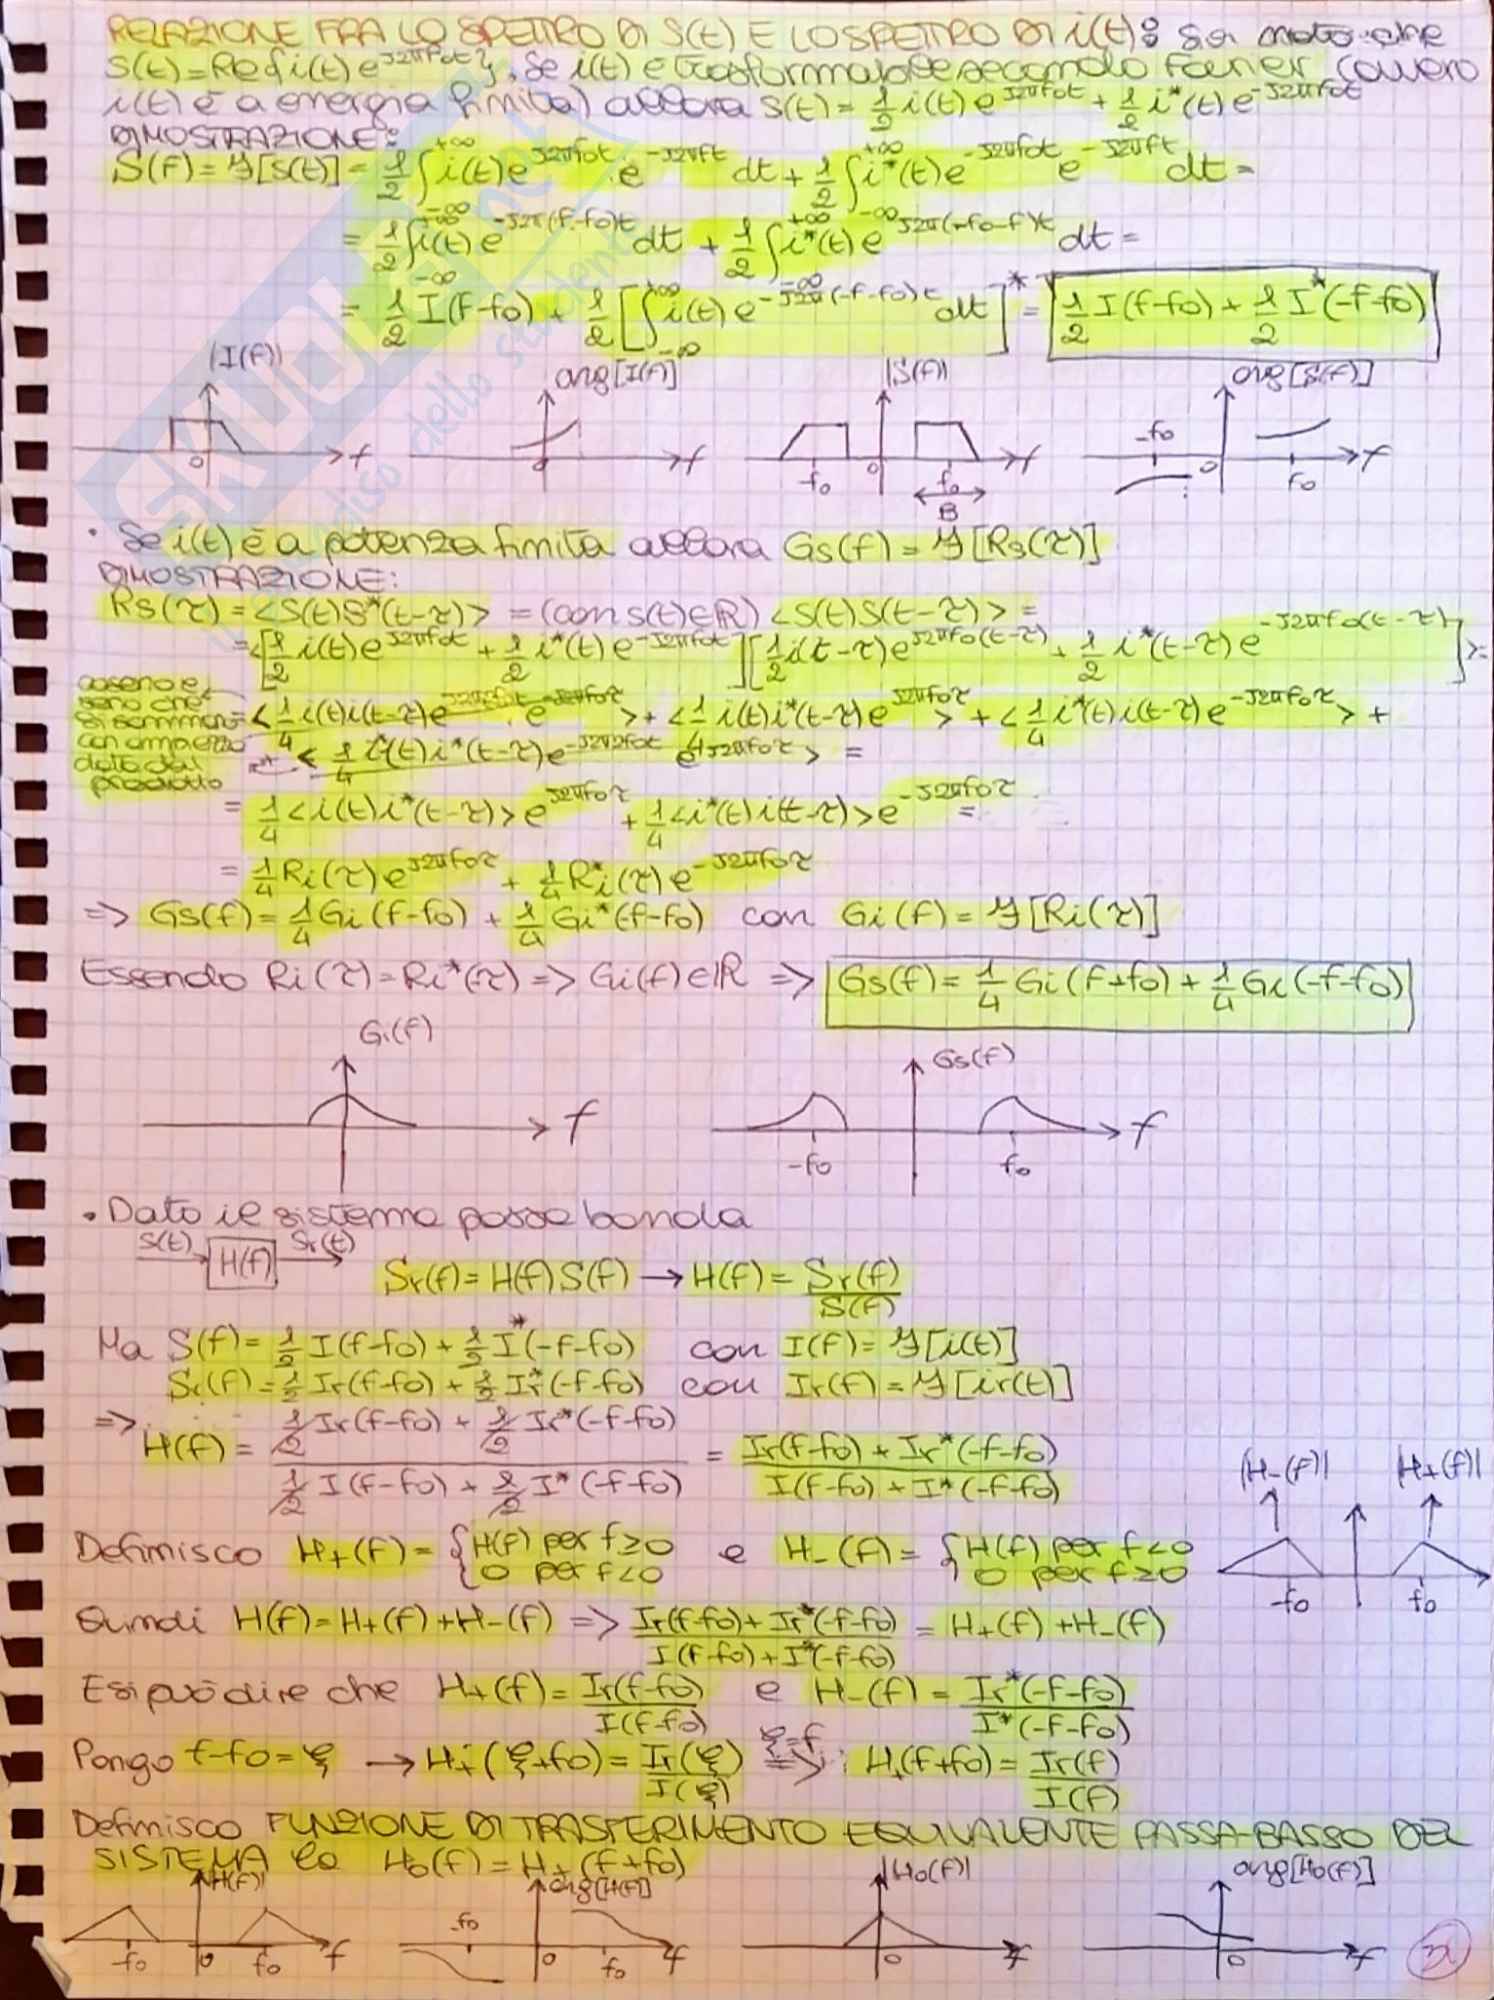 RELAZIONE FRA LO SPETTRO DI S(t) E LO SPETTRO DI i(t): Sia noto che
S(t)=Re{i(t)e^{J2πfot}}. Se i(t) è trasformabile secondo Fourier (ovvero
i(t) è a energia finita) allora S(t) = 1/2 i(t) e^{J2πfot} + 1/2 i*(t) e^{-J2πfot}
DIMOSTRAZIONE:
S(f) = F[S(t)] = 1/2 ∫_{-∞}^{+∞} i(t)e^{J2πfot} · e^{-J2πft} dt + 1/2 ∫_{-∞}^{+∞} i*(t)e^{-J2πfot} e^{-J2πft} dt =
= 1/2 ∫_{-∞}^{+∞} i(t)e^{-J2π(f-fo)t} dt + 1/2 ∫_{-∞}^{+∞} i*(t)e^{J2π(-fo-f)t} dt =
= 1/2 I(f-fo) + 1/2 [∫_{-∞}^{+∞} i(t)e^{-J2π(-f-fo)t} dt]* = 1/2 I(f-fo) + 1/2 I*(-f-fo)
|I(f)| arg[I(f)] |S(f)| arg[S(f)]
0 f 0 f -fo 0 fo f -fo 0 fo f
B
• Se i(t) è a potenza finita allora Gs(f) = F[Rs(τ)]
DIMOSTRAZIONE:
Rs(τ) = <S(t)S*(t-τ)> = (con s(t)∈R) <S(t)S(t-τ)> =
=<[1/2 i(t)e^{J2πfot} + 1/2 i*(t)e^{-J2πfot}][1/2 i(t-τ)e^{J2πfo(t-τ)} + 1/2 i*(t-τ)e^{-J2πfo(t-τ)}]>=
coseno e
seno che
si sommano
con ampiezza
data dal
prodotto
= <1/4 i(t)i(t-τ)e^{J2π2fot} · e^{-J2πfoτ}> + <1/4 i(t)i*(t-τ)e^{J2πfoτ}> + <1/4 i*(t)i(t-τ)e^{-J2πfoτ}> +
<1/4 i*(t)i*(t-τ)e^{-J2π2fot} e^{J2πfoτ}> =
= 1/4 <i(t)i*(t-τ)>e^{J2πfoτ} + 1/4 <i*(t)i(t-τ)>e^{-J2πfoτ} =
= 1/4 Ri(τ)e^{J2πfoτ} + 1/4 Ri*(τ)e^{-J2πfoτ}
=> Gs(f) = 1/4 Gi(f-fo) + 1/4 Gi*(-f-fo) con Gi(f) = F[Ri(τ)]
Essendo Ri(τ) = Ri*(-τ) => Gi(f)∈R => Gs(f) = 1/4 Gi(f+fo) + 1/4 Gi(-f-fo)
Gi(f) Gs(f)
f -fo fo f
• Dato il sistema passa banda
S(t) H(f) Sr(t)
Sr(f) = H(f)S(f) → H(f) = Sr(f)/S(f)
Ma S(f) = 1/2 I(f-fo) + 1/2 I*(-f-fo) con I(f) = F[i(t)]
Sr(f) = 1/2 Ir(f-fo) + 1/2 Ir*(-f-fo) con Ir(f) = F[ir(t)]
=> H(f) = (1/2 Ir(f-fo) + 1/2 Ir*(-f-fo))/(1/2 I(f-fo) + 1/2 I*(-f-fo)) = (Ir(f-fo) + Ir*(-f-fo))/(I(f-fo) + I*(-f-fo))
|H-(f)| |H+(f)|
-fo fo
Definisco H+(f) = {H(f) per f≥0 e H-(f) = {H(f) per f<0
0 per f<0 0 per f≥0
Quindi H(f) = H+(f) + H-(f) => (Ir(f-fo) + Ir*(-f-fo))/(I(f-fo) + I*(-f-fo)) = H+(f) + H-(f)
E si può dire che H+(f) = Ir(f-fo)/I(f-fo) e H-(f) = Ir*(-f-fo)/I*(-f-fo)
Pongo f-fo=ξ → H+(ξ+fo) = Ir(ξ)/I(ξ) ξ=f => H+(f+fo) = Ir(f)/I(f)
Definisco FUNZIONE DI TRASFERIMENTO EQUIVALENTE PASSA-BASSO DEL
SISTEMA la Ho(f) = H+(f+fo)
|H(f)| arg[H(f)] |Ho(f)| arg[Ho(f)]
-fo 0 fo f -fo 0 fo f 0 f 0 f